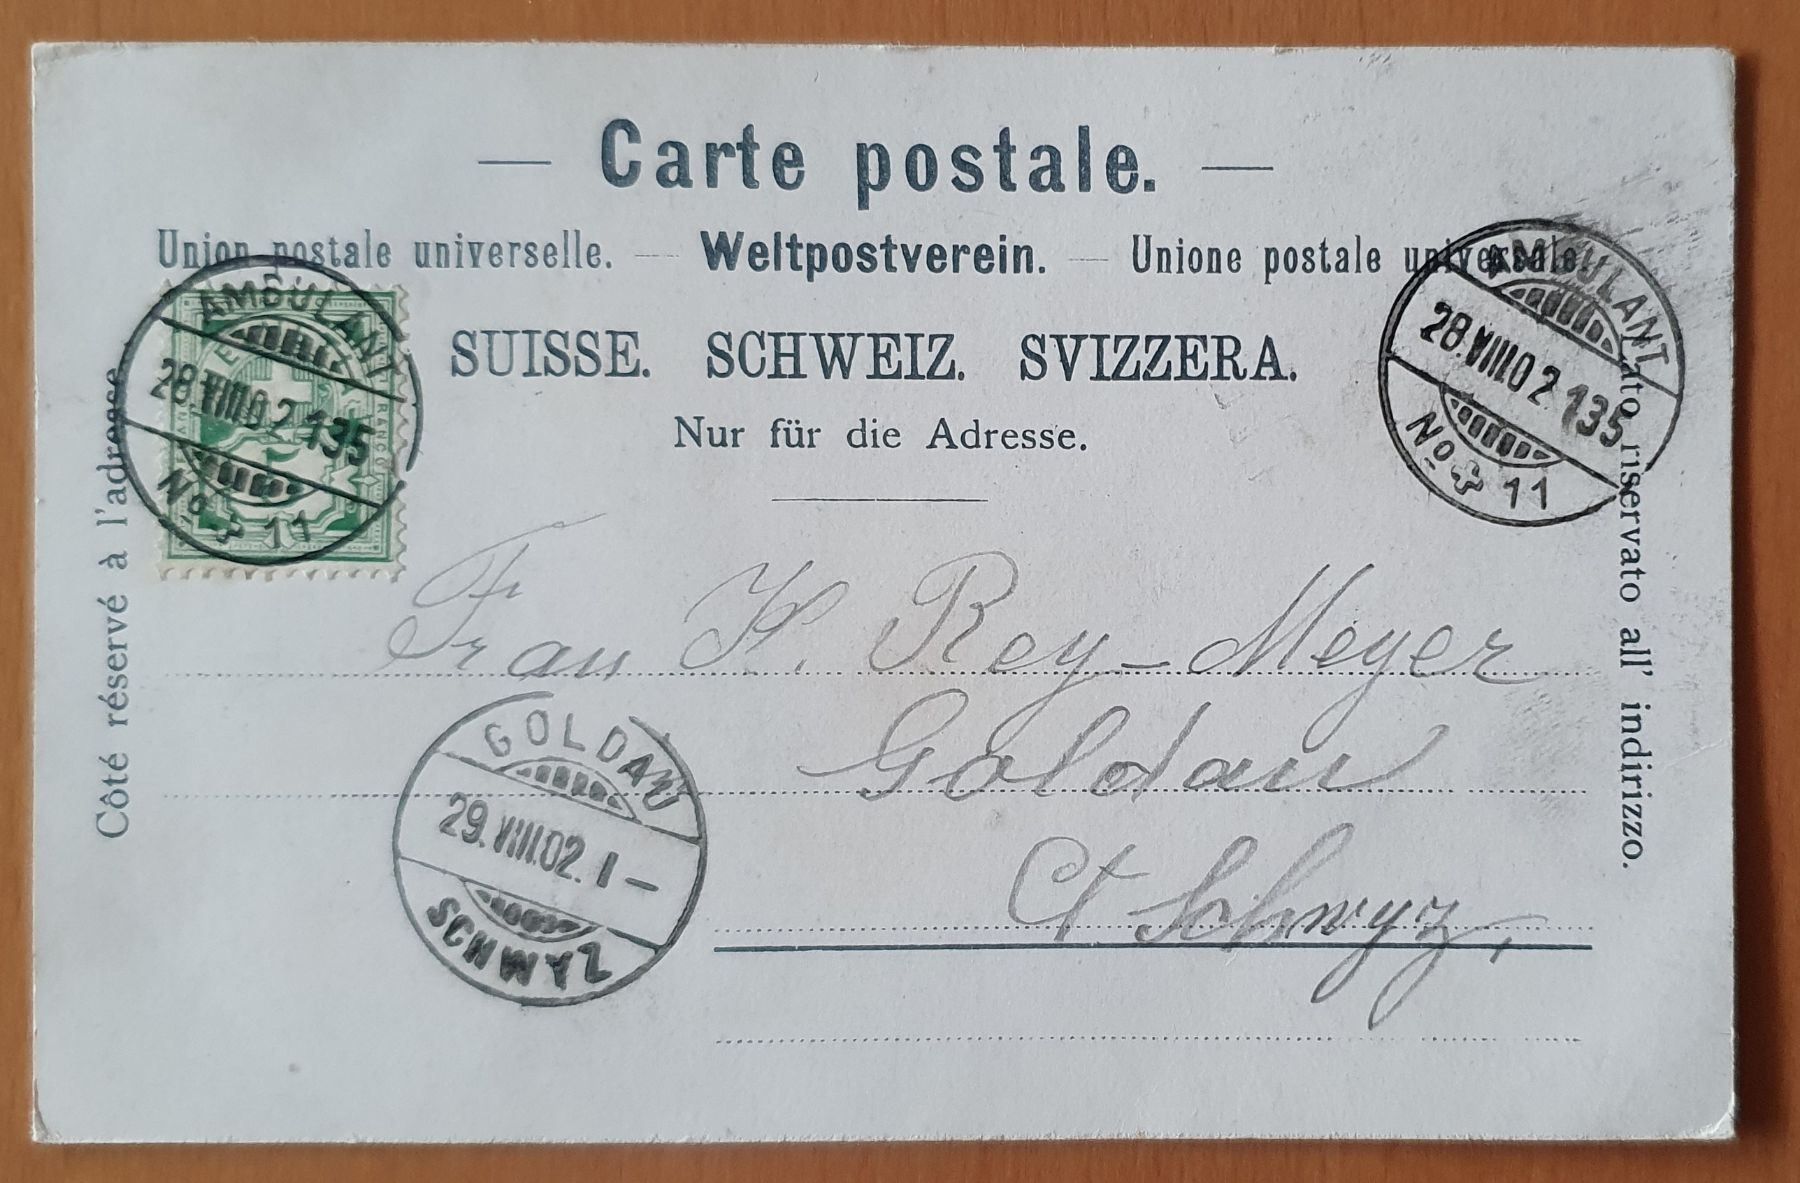 — Carte postale. —
Union postale universelle. — Weltpostverein. — Unione postale universale.
SUISSE. SCHWEIZ. SVIZZERA.
Nur für die Adresse.
AMBULANT
28.VIII.02 135
No 11
AMBULANT
28.VIII.02 135
No 11
Côté réservé à l'adresse
riservato all' indirizzo.
Frau K. Rey-Meyer
Goldau
Ct Schwyz,
GOLDAU
29.VIII.02. I–
SCHWYZ